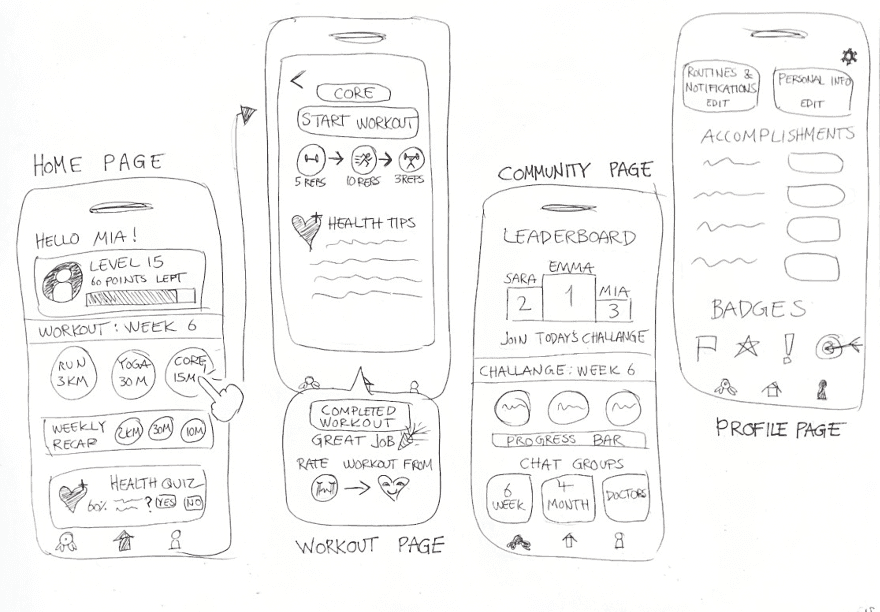 HOME PAGE
HELLO MIA!
LEVEL 15
60 POINTS LEFT
WORKOUT: WEEK 6
RUN
3KM
YOGA
30M
CORE
15M
WEEKLY
RECAP
2KM
30M
10M
HEALTH QUIZ
60%
? YES NO
<
CORE
START WORKOUT
5 REPS
10 REPS
3 REPS
HEALTH TIPS
COMPLETED
WORKOUT
GREAT JOB
RATE WORKOUT FROM
WORKOUT PAGE
COMMUNITY PAGE
LEADERBOARD
EMMA
SARA
MIA
2
1
3
JOIN TODAY'S CHALLANGE
CHALLANGE: WEEK 6
PROGRESS BAR
CHAT GROUPS
6
WEEK
4
MONTH
DOCTORS
ROUTINES &
NOTIFICATIONS
EDIT
PERSONAL INFO
EDIT
ACCOMPLISHMENTS
BADGES
!
PROFILE PAGE